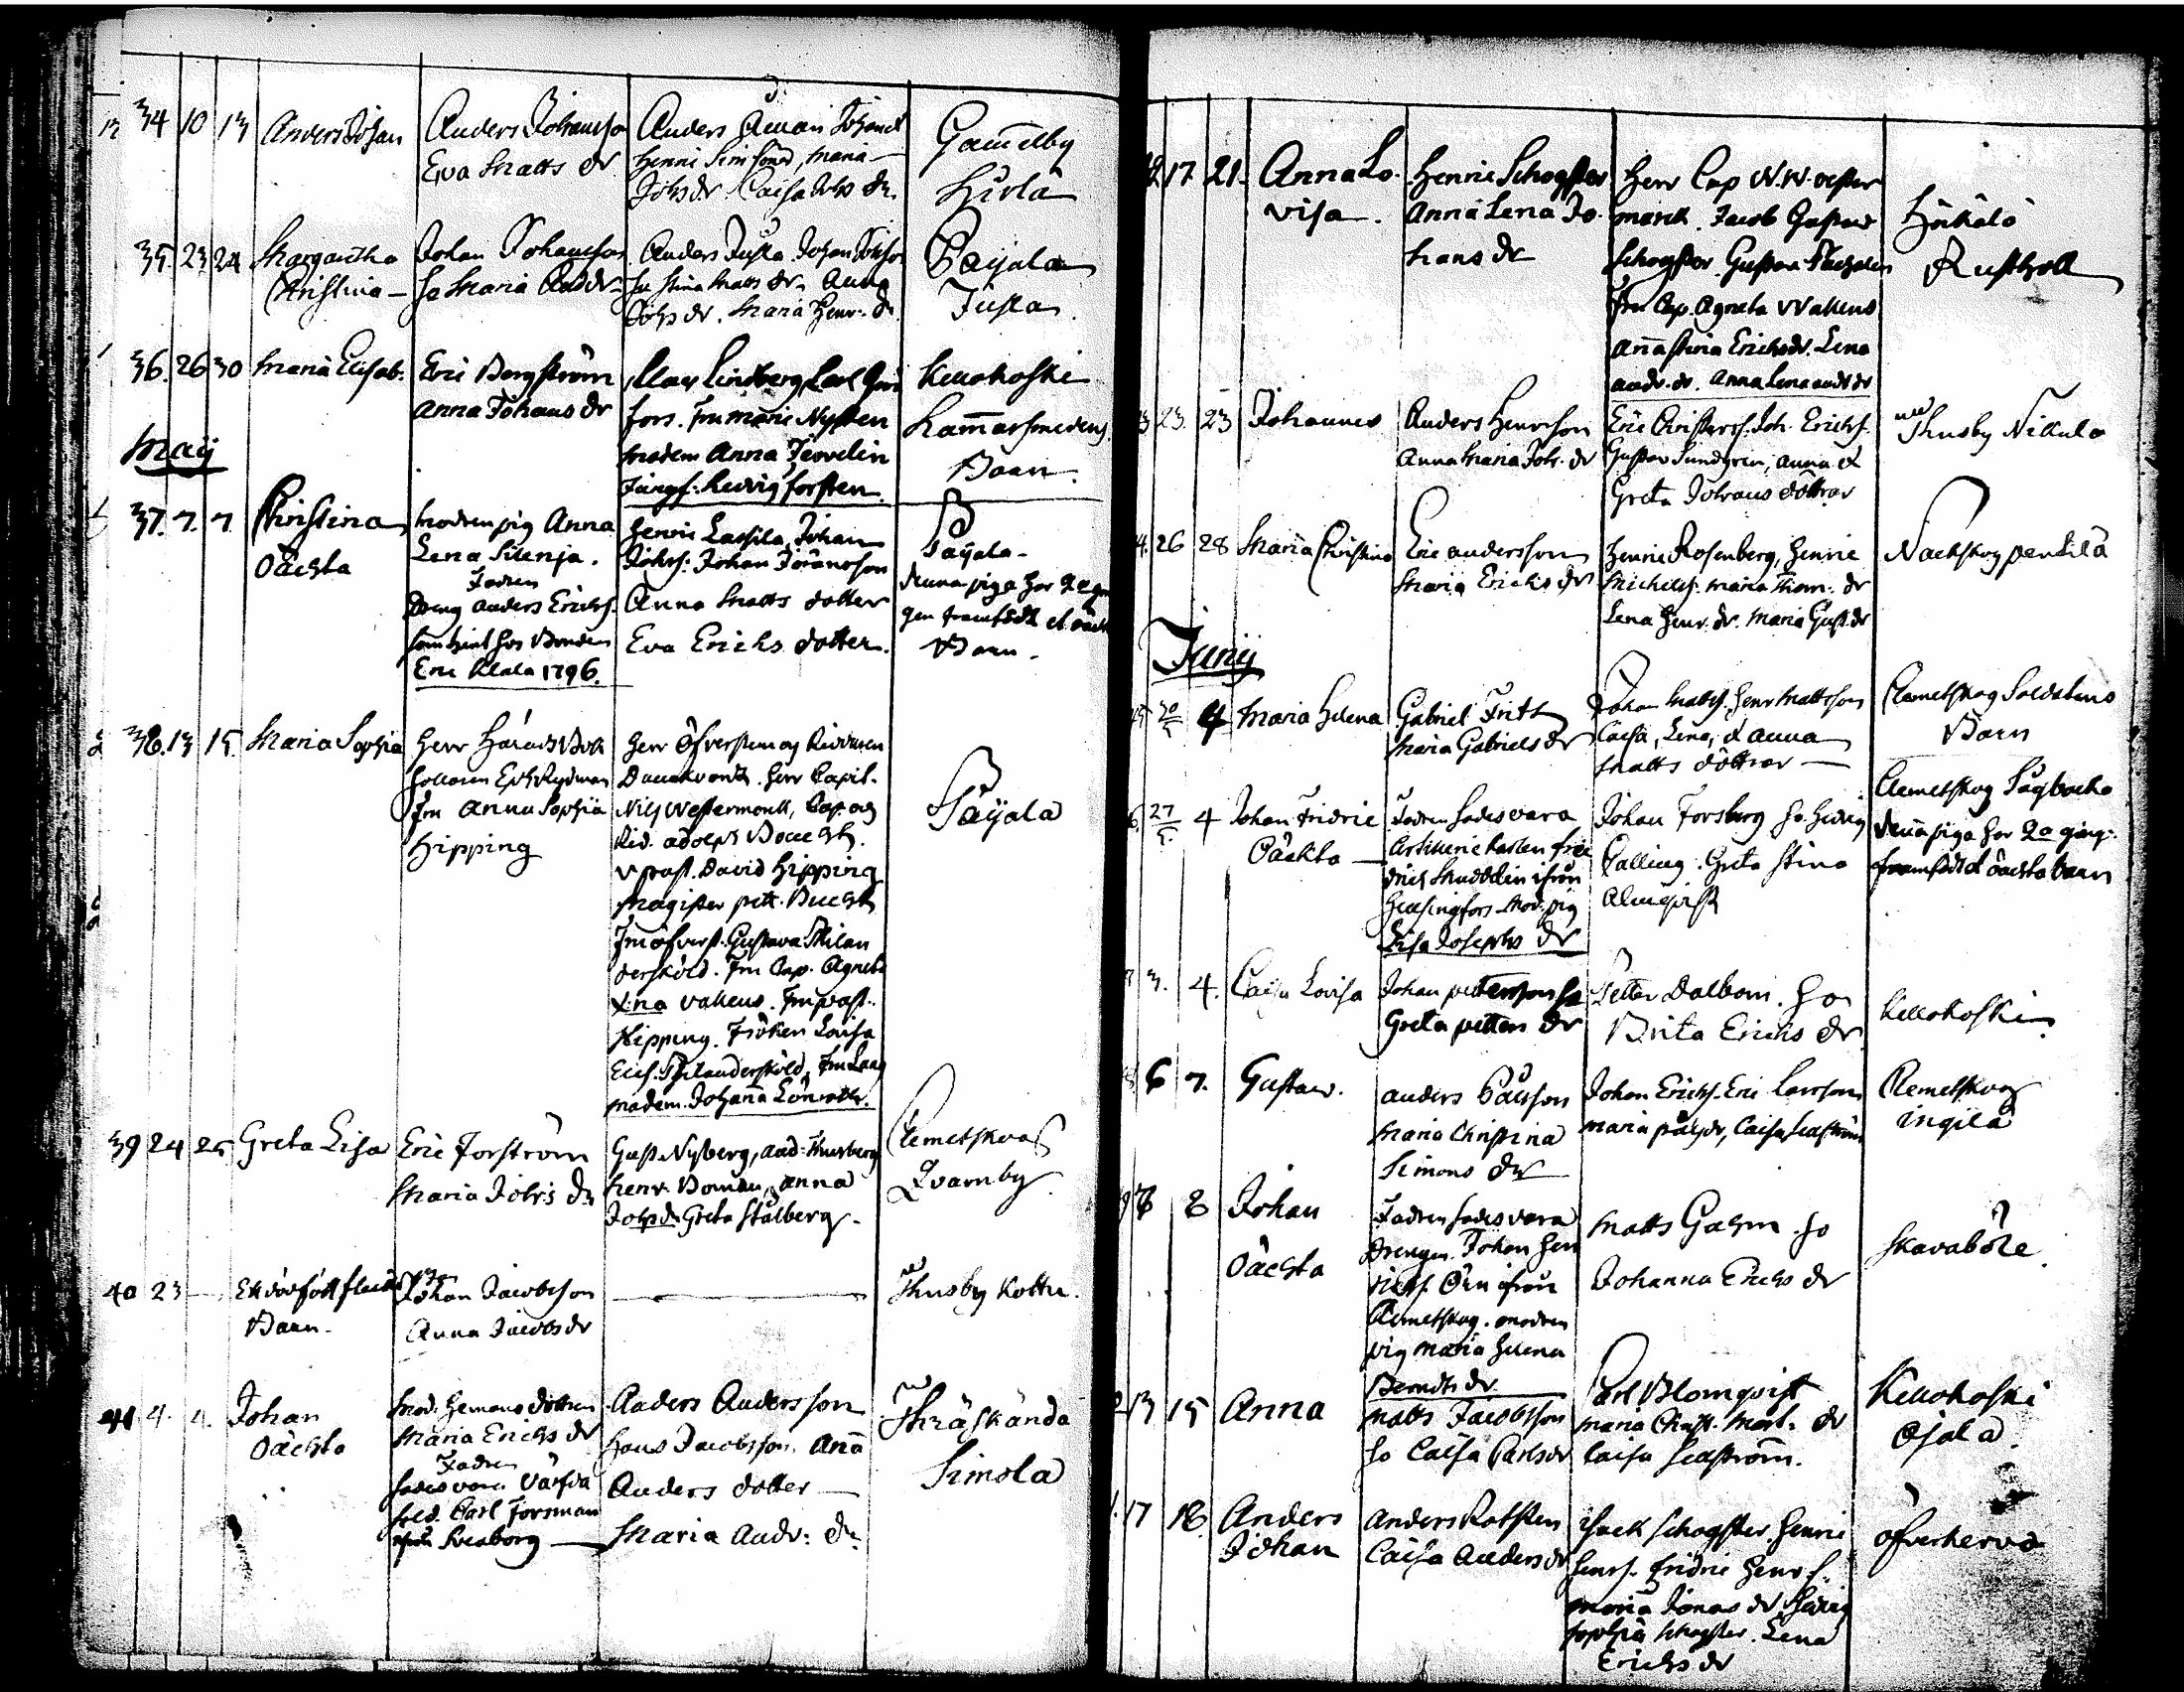 34 10 13 Anders Johan
Anders Johansson
Eva Matts dr
Anders Johans
Henric Simsons, Maria
Johs dr. Caisa Johs dr.
Gamelby
Hurla
35. 23 24 Margaretha
Christina
Johan Johansson
ho Maria And dr
Anders Jusla Johan Johsson
hu Stina Matts dr. Anna
Johs dr. Maria Henr. dr.
Paijala
Jusla
36. 26 30 Maria Elisab.
Eric Bergström
Anna Johans dr
Clas Lindberg, Carl
fors. fru Marie Nysten
Madem Anna Tesvelin
Jungf: Hedvig forsten
Kellokoski
Hammarsmedens
Baarn
Maij
37. 7. 7. Christina
Oächta
Modren pig Anna
Lena Silenja.
Fadren
Dreng Anders Erichs.
som tient hos Bonden
Eric Klala 1796.
Henric Lassila, Johan
Johss: Johan Jöransson
Anna Matts dotter
Eva Erichs dotter.
Paijala
denna piga har 2
gen framfödt et oäch
Barn.
38. 13 15. Maria Sophia
Herr Härads
hollaren Rydman
fru Anna Sophia
Hipping
Herr Öfversten og Riddaren
Herr Capit.
Nils Westermarck, Cap. og
Rid. Adolph
v past. David Hipping
Magister pett.
fru öfverst. Gustava
fru Cap. Agneta
Vallens. fru past.
Hipping. Fröken Lovisa
Elis. fru Lang
madem. Johanna Lönroth.
Paijala
39 24 25 Greta Lisa
Eric Forström
Maria Johs dr
Gust. Nyberg, And:
Henr. Boman, Anna
Johs dr Greta Stålberg.
Clemetskog
Qvarnby
40 23 Et dödfödt flicke
Barn.
Johan Jacobsson
Anna Jacobs dr
Thusby Kottu.
41 4. 4. Johan
Oächta
Mod. Hemans dottren
Maria Erichs dr
Fadren
sades vara Värfva
sold. Carl Forsman
ifrån Sveaborg
Anders Andersson
Hans Jacobsson. Anna
Anders dotter
Maria Andr: dr
Thräskända
Simola
17. 21. Anna Lo
visa
Henric Schogster
Anna Lena Jo
hans dr
Herr Cap N. W. vester
marck. Jacob Gustav
Schogster. Gustava
Fru Cap. Agneta Wallens
Anna Stina Erichsdr. Lena
Andr. dr. Anna Lena Andr dr
Hökälö
Rusthåll
23. 23 Johannes
Anders Henrsson
Anna Maria Joh. dr
Eric Christerss. Joh. Erichs.
Gustav Sundgren, Anna &
Greta Johans döttrar
Thusby Nikula
26 28 Maria Christina
Eric Andersson
Maria Erichs dr
Henric Rosenberg, Henric
Michelss. Maria Thom: dr
Lena Henr. dr. Maria Gust. dr
Nackskog pentilä
Junij
4 Maria Helena
Gabriel Frith
Maria Gabriels dr
Johan Matts. Henr Mattsson
Caisa, Lena, & Anna
Matts döttrar
Clemetskog Soldatens
Barn
27/5. 4 Johan Fridric
Oächta
Fadren sades vara
Artillerie Karlen fri
drich ifrån
Helsingfors Mod. pig
Lisa Josephs dr
Johan Forsberg ho Hedvig
Palling. Greta Stina
Almqvist
Clemetskog Sågbacka
denna piga har 2a gång:
framfödt oächta barn
3. 4. Caisa Lovisa
Johan pettersson ho
Greta petters dr
Petter Dalbom. ho
Brita Erichs dr
Kellokoski
6 7. Gustav.
Anders Påvsson
Maria Christina
Simons dr
Johan Erichs. Eric Larsson
Maria påls dr, Caisa Seaström
Clemetskog
ingilä
6 8 Johan
Oächta
Fadren sades vara
Drengen Johan Hen
ricss. ifrån
Clemetskog. modren
pig Maria Helena
Berndts dr
Matts Gahm. ho
Johanna Erichs dr
Skavaböle
13 15 Anna
Matts Jacobsson
ho Caisa Carls dr
Carl Blomqvist
Maria Christ. Mart. dr
Caisa Seaström.
Kellokoski
Ojala.
17 18 Anders
Johan
Anders Rotsten
Caisa Anders dr
Isack Schogster, Henric
Henrs. Fridric Henrs.
Maria Jonas dr Hedvig
Sophia Schogster. Lena
Erichs dr
Öfverkervo